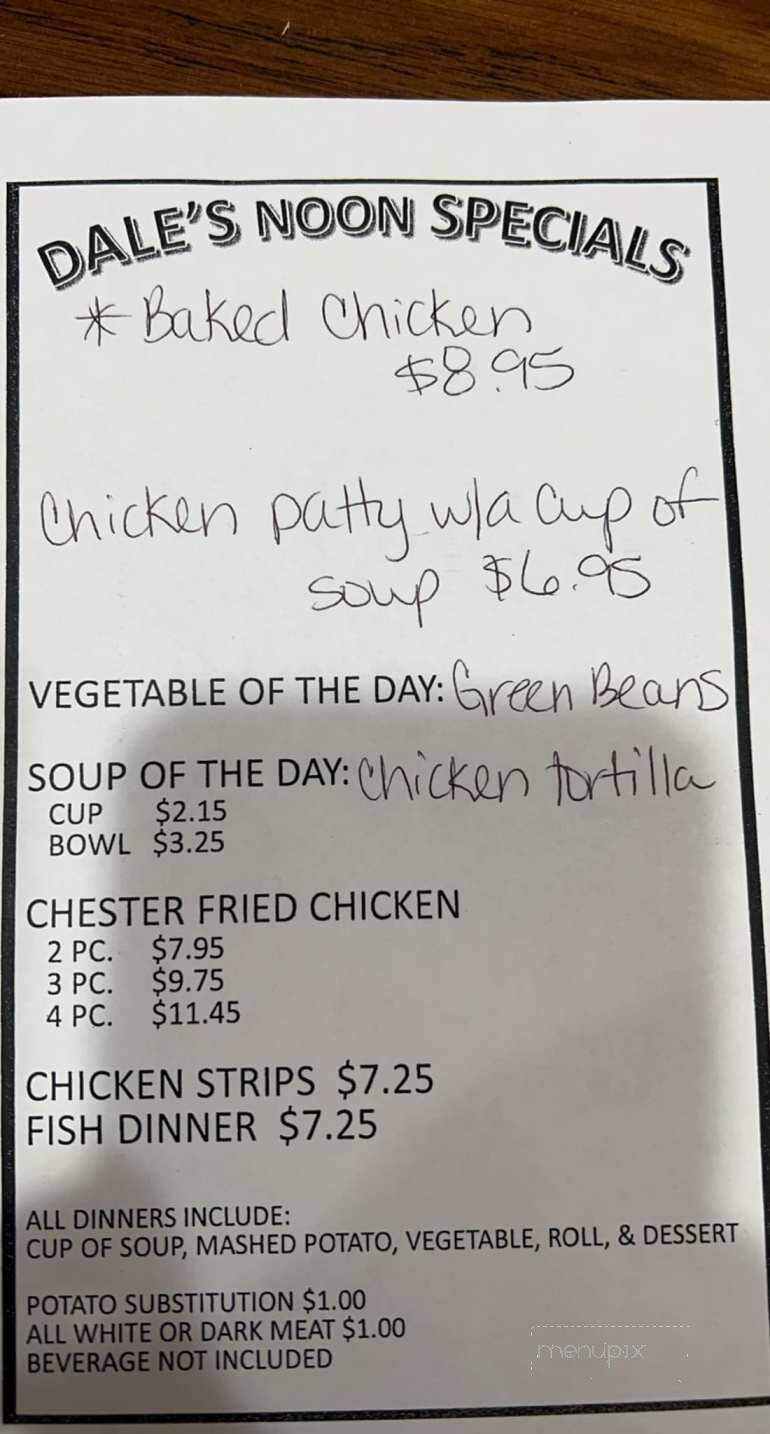 DALE'S NOON SPECIALS
* Baked Chicken
$8.95
Chicken patty w/a Cup of
soup $6.95
VEGETABLE OF THE DAY: Green Beans
SOUP OF THE DAY: Chicken tortilla
CUP $2.15
BOWL $3.25
CHESTER FRIED CHICKEN
2 PC. $7.95
3 PC. $9.75
4 PC. $11.45
CHICKEN STRIPS $7.25
FISH DINNER $7.25
ALL DINNERS INCLUDE:
CUP OF SOUP, MASHED POTATO, VEGETABLE, ROLL, & DESSERT
POTATO SUBSTITUTION $1.00
ALL WHITE OR DARK MEAT $1.00
BEVERAGE NOT INCLUDED
menupix